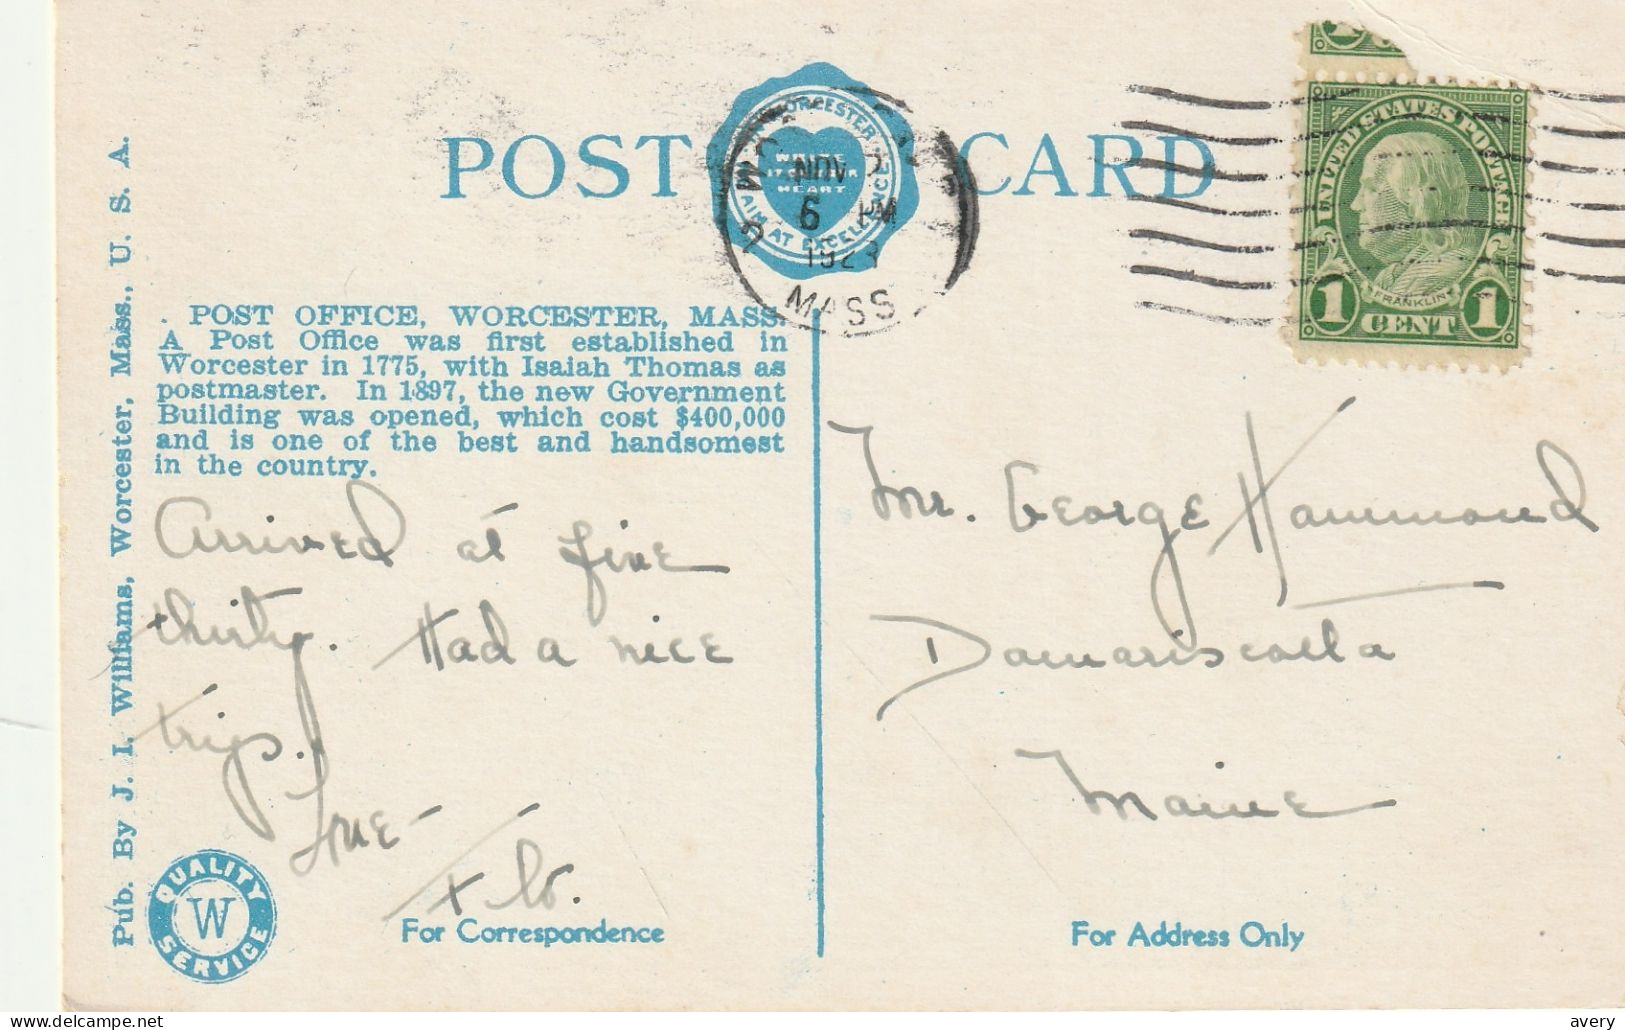 POST CARD
WORCESTER
HEART
AIM AT EXCELLENCE
NOV
6 PM
1923
MASS
UNITED STATES POSTAGE
FRANKLIN
1 CENT 1
Pub. By J. I. Williams, Worcester, Mass., U. S. A.
POST OFFICE, WORCESTER, MASS.
A Post Office was first established in
Worcester in 1775, with Isaiah Thomas as
postmaster. In 1897, the new Government
Building was opened, which cost $400,000
and is one of the best and handsomest
in the country.
Arrived at five
thirty. Had a nice
trip.
Love
Mr. George Hammond
Damariscotta
Maine
QUALITY
W
SERVICE
For Correspondence
For Address Only
www.delcampe.net
avery